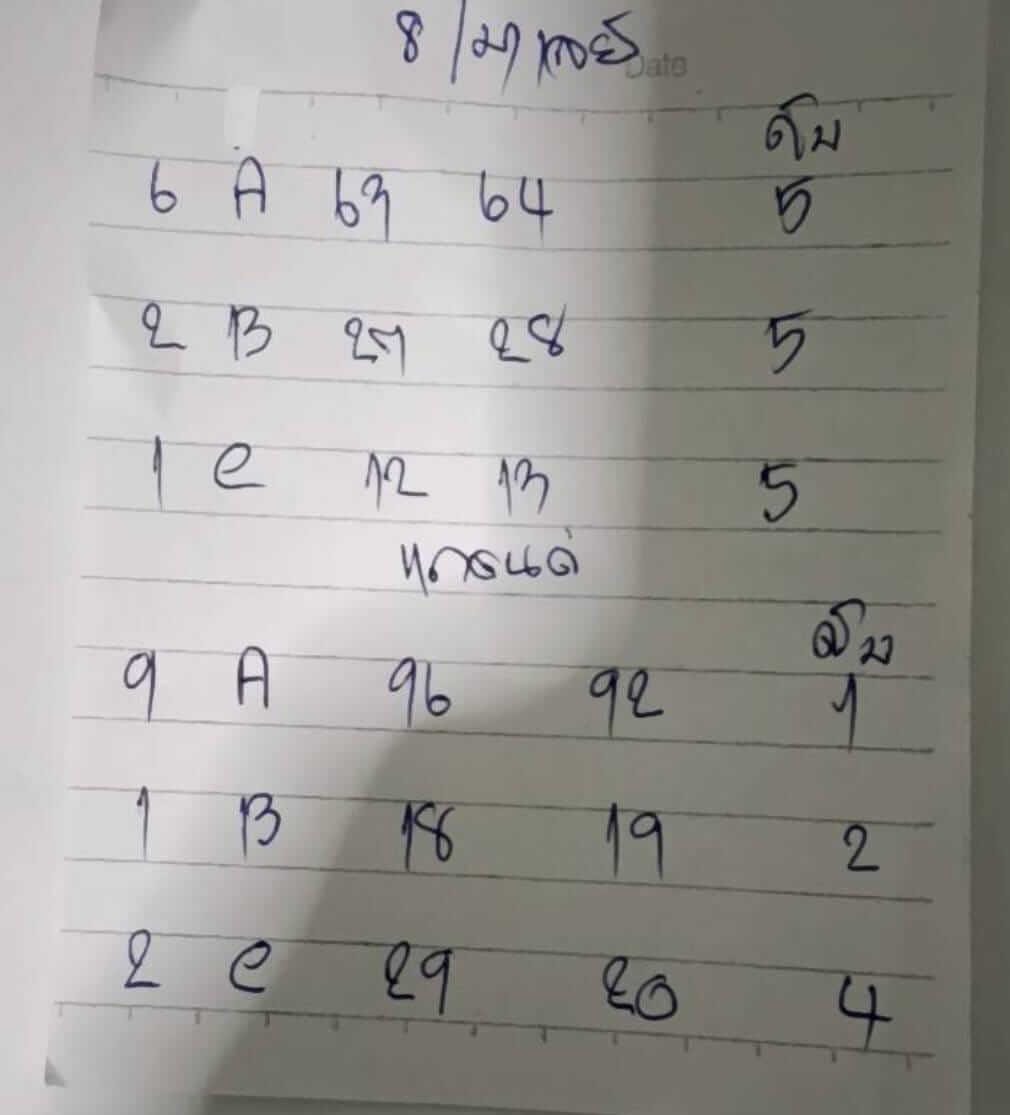 8/มา เลย์
Date
ดับ
6 A 63 64 5
2 B 27 28 5
1 C 12 13 5
ดับ
9 A 96 92 1
1 B 18 19 2
2 C 29 20 4